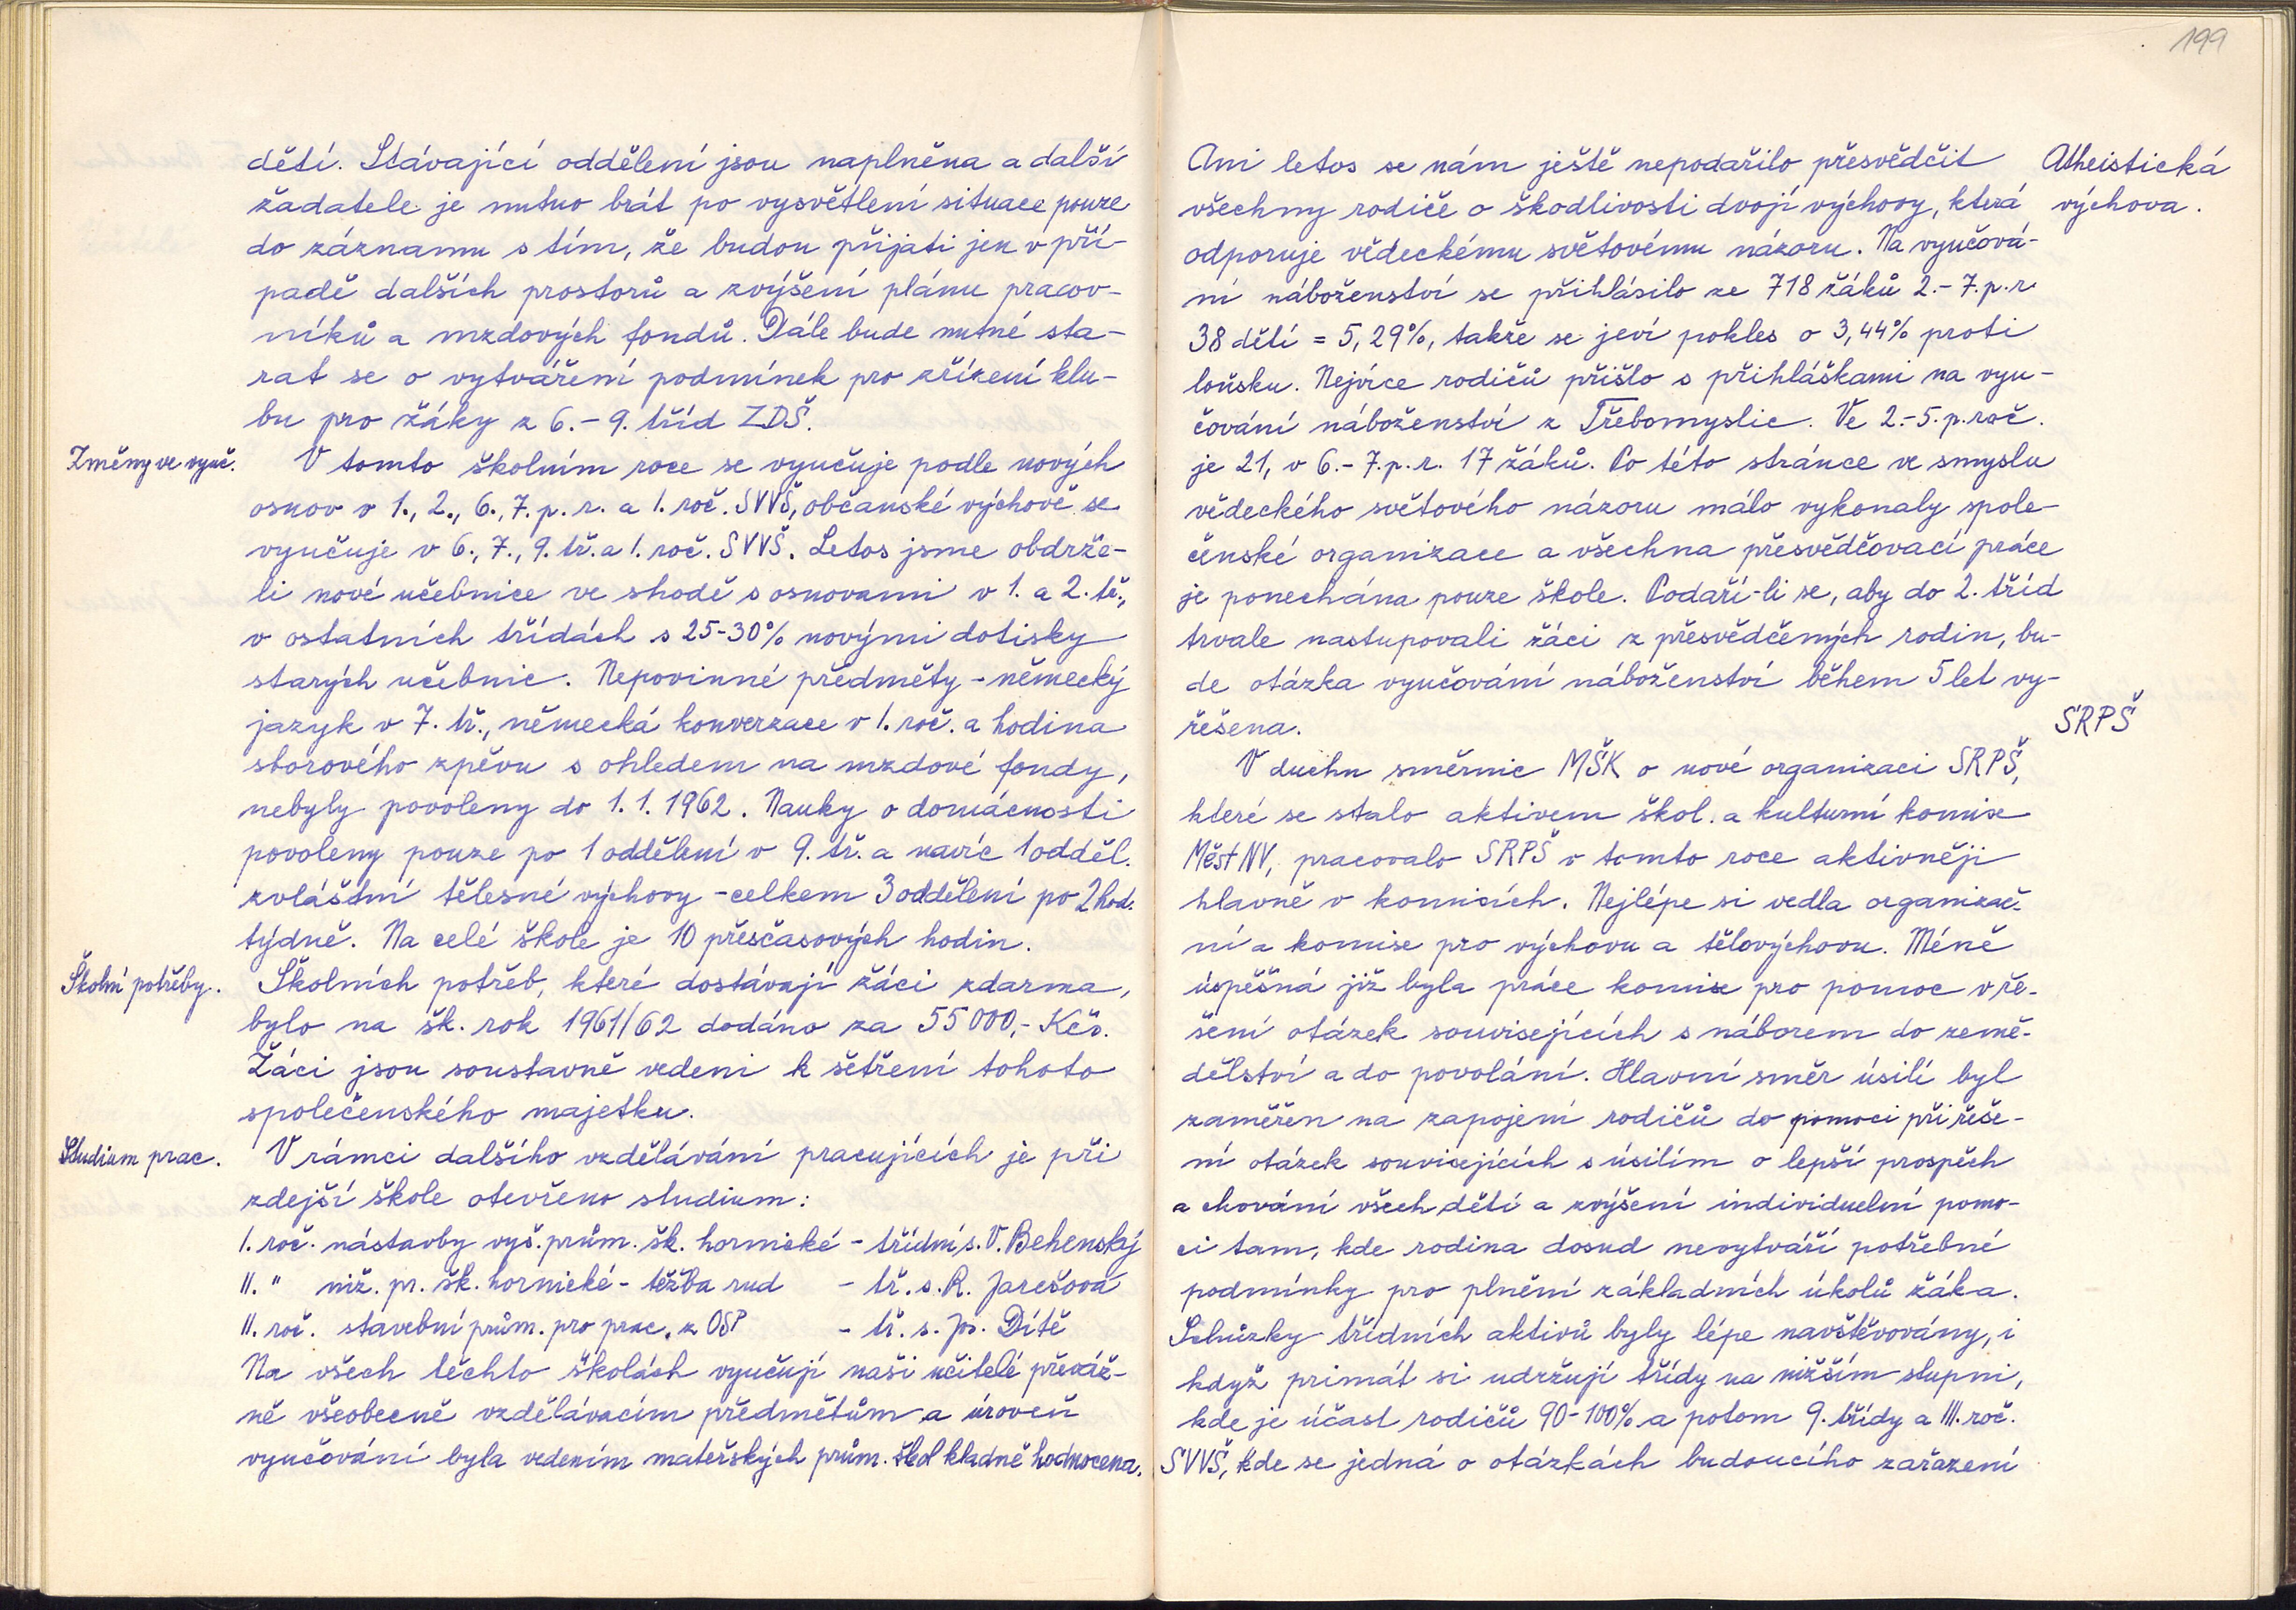 199
dětí. Stávající oddělení jsou naplněna a další
žadatele je nutno brát po vysvětlení situace pouze
do záznamu s tím, že budou přijati jen v pří-
padě dalších prostorů a zvýšení plánu pracov-
níků a mzdových fondů. Dále bude nutné sta-
rat se o vytváření podmínek pro zřízení klu-
bu pro žáky z 6.-9. tříd ZDŠ.
Změny ve vyuč.
V tomto školním roce se vyučuje podle nových
osnov v 1., 2., 6., 7. p. r. a 1. roč. SVVŠ, občanské výchově se
vyučuje v 6., 7., 9. tř. a 1. roč. SVVŠ. Letos jsme obdrže-
li nové učebnice ve shodě s osnovami v 1. a 2. tř.,
v ostatních třídách s 25-30% novými dotisky
starých učebnic. Nepovinné předměty - německý
jazyk v 7. tř., německá konverzace v 1. roč. a hodina
sborového zpěvu s ohledem na mzdové fondy,
nebyly povoleny do 1.1.1962. Nauky o domácnosti
povoleny pouze po 1 oddělení v 9. tř. a navíc 1 odděl.
zvláštní tělesné výchovy - celkem 3 oddělení po 2 hod.
týdně. Na celé škole je 10 přesčasových hodin.
Školní potřeby.
Školních potřeb, které dostávají žáci zdarma,
bylo na šk. rok 1961/62 dodáno za 55 000,- Kčs.
Žáci jsou soustavně vedeni k šetření tohoto
společenského majetku.
Studium prac.
V rámci dalšího vzdělávání pracujících je při
zdejší škole otevřeno studium:
I. roč. nástavby vyš. prům. šk. hornické - třídní s. V. Behenský
II. " niž. pr. šk. hornické - těžba rud - tř. s. R. Jarešová
II. roč. stavební prům. pro prac. z OSP - tř. s. Jos. Dítě
Na všech těchto školách vyučují naši učitelé převáž-
ně všeobecně vzdělávacím předmětům a úroveň
vyučování byla vedením mateřských prům. škol kladně hodnocena.
Ani letos se nám ještě nepodařilo přesvědčit
všechny rodiče o škodlivosti dvojí výchovy, která
odporuje vědeckému světovému názoru. Na vyučová-
ní náboženství se přihlásilo ze 718 žáků 2.-7. p. r.
38 dětí = 5,29%, takže se jeví pokles o 3,44% proti
loňsku. Nejvíce rodičů přišlo s přihláškami na vyu-
čování náboženství z Třebomyslic. Ve 2.-5. p. roč.
je 21, v 6.-7. p. r. 17 žáků. Po této stránce ve smyslu
vědeckého světového názoru málo vykonaly spole-
čenské organizace a všechna přesvědčovací práce
je ponechána pouze škole. Podaří-li se, aby do 2. tříd
trvale nastupovali žáci z přesvědčených rodin, bu-
de otázka vyučování náboženství během 5 let vy-
řešena.
Atheistická
výchova.
SRPŠ
V duchu směrnic MŠK o nové organizaci SRPŠ,
které se stalo aktivem škol. a kulturní komise
Měst NV, pracovalo SRPŠ v tomto roce aktivněji
hlavně v komisích. Nejlépe si vedla organizač-
ní a komise pro výchovu a tělovýchovu. Méně
úspěšná již byla práce komise pro pomoc v ře-
šení otázek souvisejících s náborem do země-
dělství a do povolání. Hlavní směr úsilí byl
zaměřen na zapojení rodičů do pomoci při řeše-
ní otázek souvisejících s úsilím o lepší prospěch
a chování všech dětí a zvýšení individuelní pomo-
ci tam, kde rodina dosud nevytváří potřebné
podmínky pro plnění základních úkolů žáka.
Schůzky třídních aktivů byly lépe navštěvovány, i
když primát si udržují třídy na nižším stupni,
kde je účast rodičů 90-100% a potom 9. třídy a III. roč.
SVVŠ, kde se jedná o otázkách budoucího zařazení